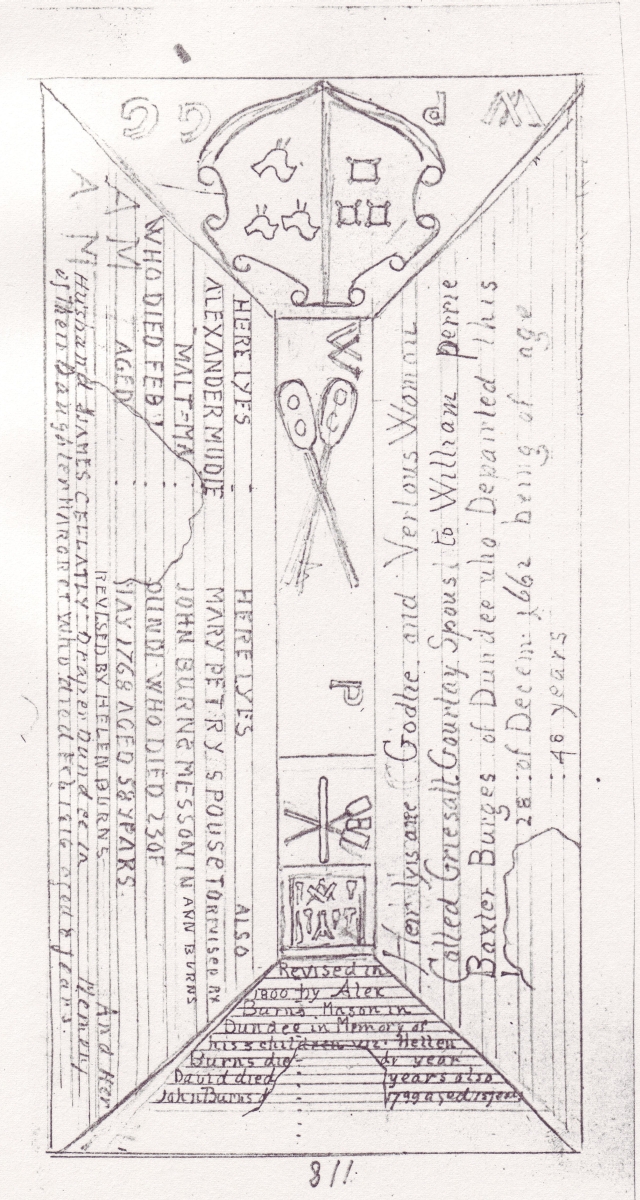 G G P W
Heir lyis ane Godlie and Verlous Woman
Called Griesall Gourlay Spous to William perrie
Baxter Burges of Dundee who Depairted this
28 of Decem 1662 being of age
46 years
W
P
HERE LYES
ALEXANDER MUDIE
MALT=MA
WHO DIED FEB
AGED
A M
A M
HERE LYES ALSO
MARY PETRY SPOUSE TO
JOHN BURNS MESSON IN
DUNDI WHO DIED 23 OF
MAY 1768 AGED 58 YEARS.
REVISED BY ANN BURNS
REVISED BY HELEN BURNS And Her
Husband JAMES CELLATLY Draper Dundee in Memory
of their Daughter MARGRET who died aged years
Revised in
1800 by Alex
Burns Mason in
Dundee in Memory of
his 3 children viz. Hellen
Burns die d year
David died years also
John Burns d 1799 aged 15 years
118